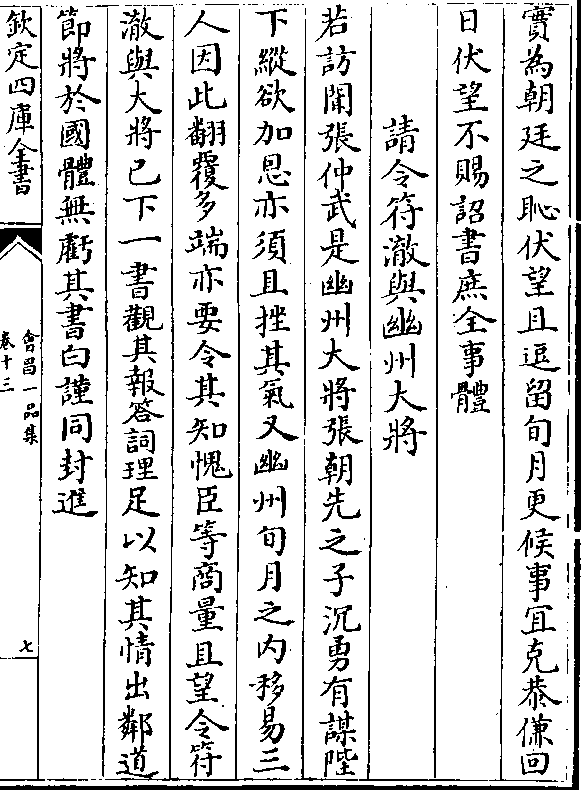 實為朝廷之恥伏望且逗留旬月更候事宜克恭傔回
日伏望不賜詔書庶全事體
請令符澈與幽州大將
若訪聞張仲武是幽州大將張朝先之子沉勇有謀陛
下縱欲加恩亦須且挫其氣又幽州旬月之內移易三
人因此翻覆多端亦要令其知愧臣等商量且望令符
澈與大將已下一書觀其報答詞理足以知其情出鄰道
節將於國體無虧其書白謹同封進
欽定四庫全書
會昌一品集
卷十三
七